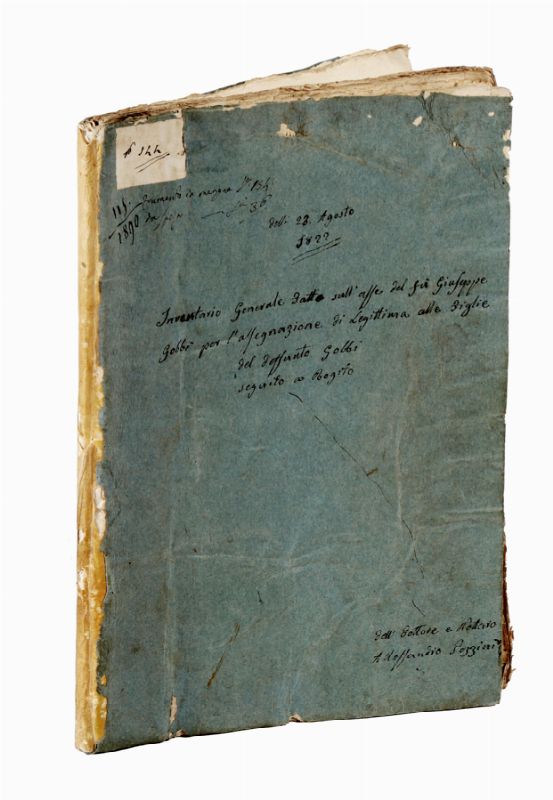 № 144
115. Frumento in ragione 154
1890 36
delli 23. Agosto
1822
Inventario Generale Fatto sull'asse del fù Giuseppe
Gobbi per l'assegnazione di Legittima alle Figlie
del deffunto Gobbi
seguito a Rogito
Dell' Dottore e Notaro
Alessandro Pozzini